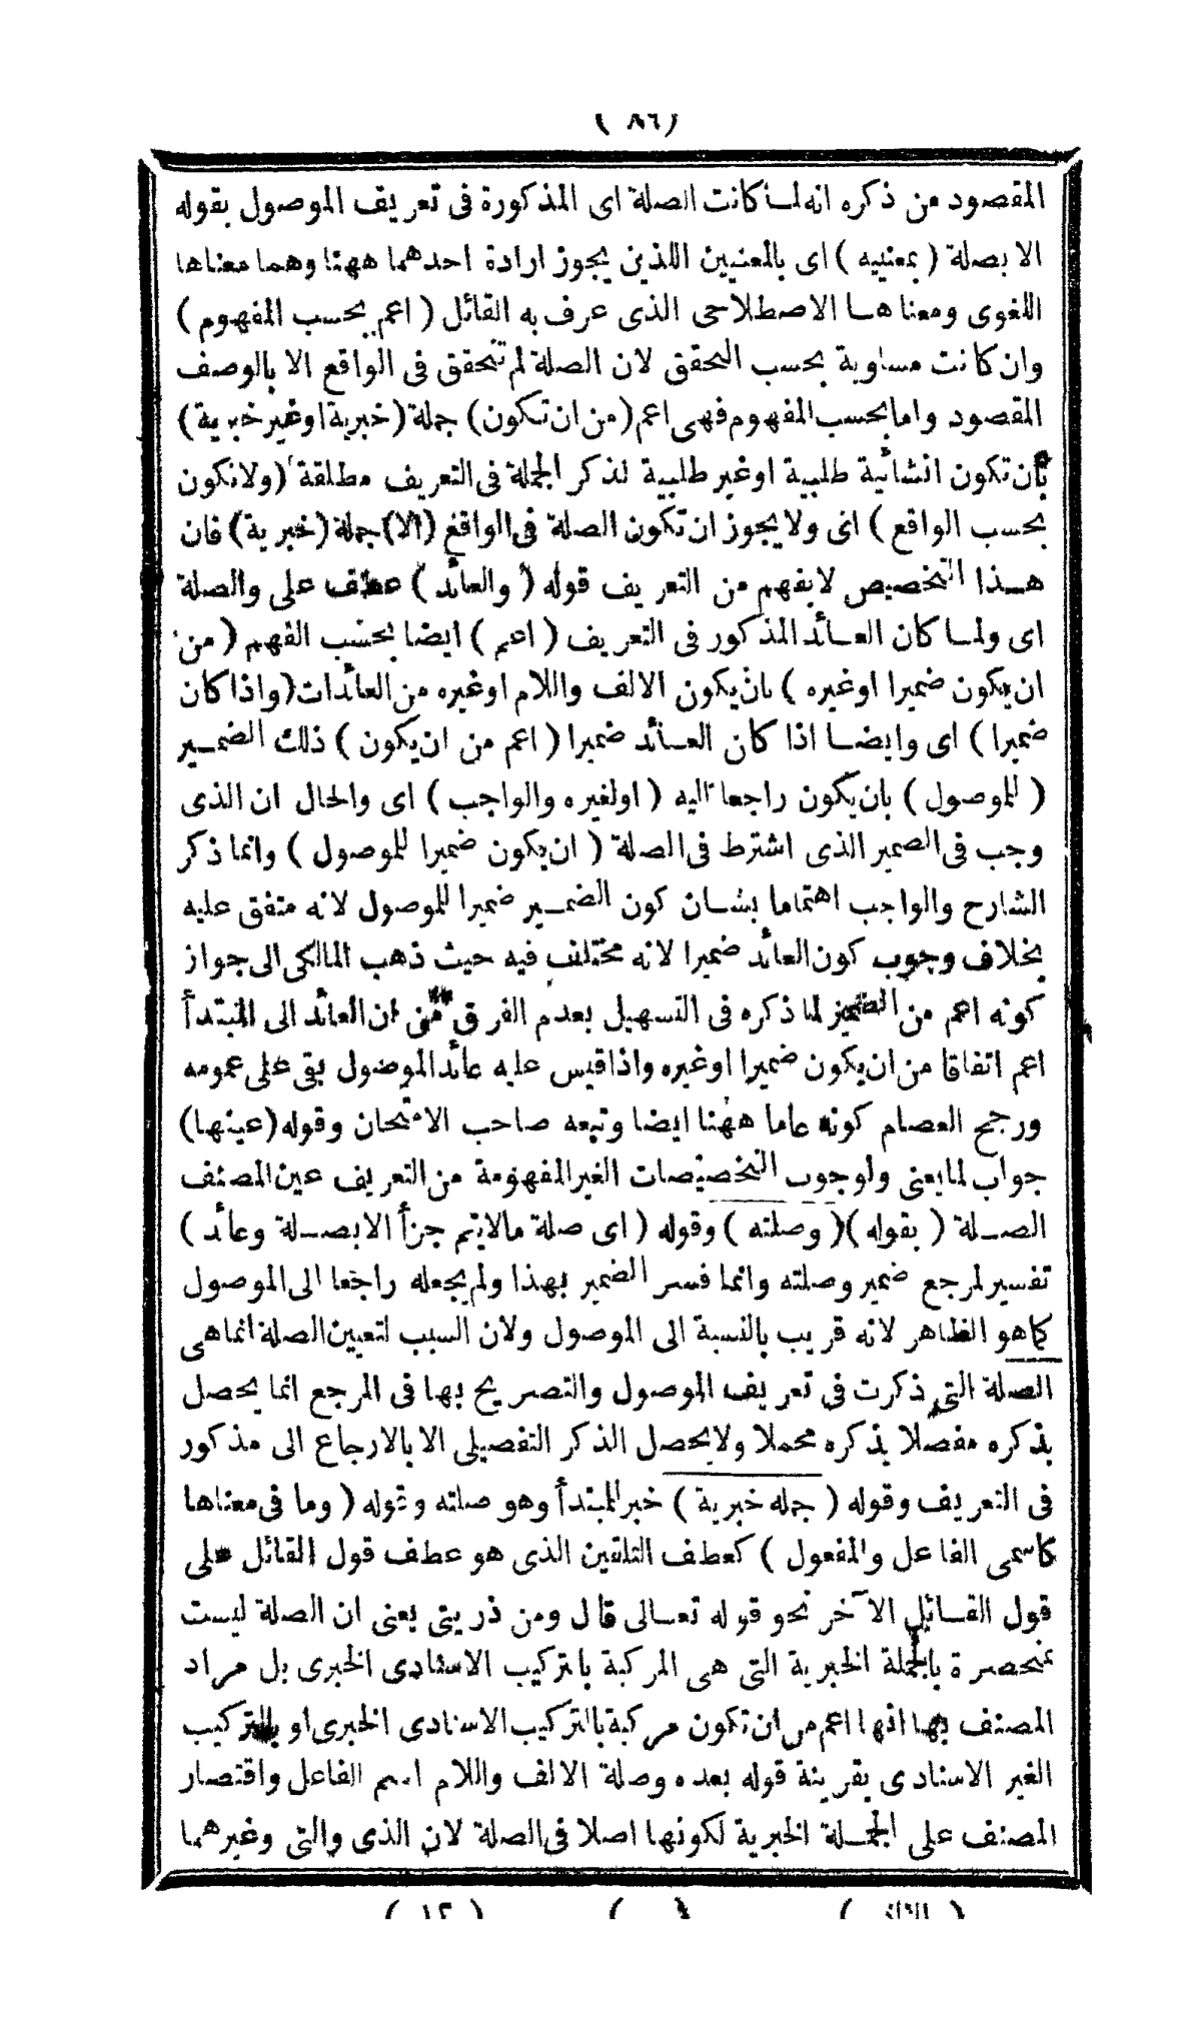 ( ٨٦ )
المقصود من ذكره انه لما كانت الصلة اى المذكورة فى تعريف الموصول بقوله
الا بصلة ( بمعنييه ) اى بالمعنيين اللذين يجوز ارادة احدهما ههنا وهما معناها
اللغوى ومعناها الاصطلاحى الذى عرف به القائل ( اعم بحسب المفهوم )
وان كانت مساوية بحسب التحقق لان الصلة لم تتحقق فى الواقع الا بالوصف
المقصود واما بحسب المفهوم فهى اعم ( من ان تكون ) جملة ( خبرية او غير خبرية )
بأن تكون انشائية طلبية او غير طلبية لذكر الجملة فى التعريف مطلقة ( ولا تكون
بحسب الواقع ) اى ولا يجوز ان تكون الصلة فى الواقع ( الا ) جملة ( خبرية ) فان
هذا التخصيص لا يفهم من التعريف قوله ( والعائد ) عطف على والصلة
اى ولما كان العائد المذكور فى التعريف ( اعم ) ايضا بحسب الفهم ( من
ان يكون ضميرا او غيره ) بان يكون الالف واللام او غيره من العائدات ( واذا كان
ضميرا ) اى وايضا اذا كان العائد ضميرا ( اعم من ان يكون ) ذلك الضمير
( للموصول ) بان يكون راجعا اليه ( او لغيره والواجب ) اى والحال ان الذى
وجب فى الضمير الذى اشترط فى الصلة ( ان يكون ضميرا للموصول ) وانما ذكر
الشارح والواجب اهتماما بشان كون الضمير ضميرا للموصول لانه متفق عليه
بخلاف وجوب كون العائد ضميرا لانه مختلف فيه حيث ذهب المالكى الى جواز
كونه اعم من الضمير لما ذكره فى التسهيل بعدم الفرق من ان العائد الى المبتدأ
اعم اتفاقا من ان يكون ضميرا او غيره واذا قيس عليه عائد الموصول بقى على عمومه
ورجح العصام كونه عاما ههنا ايضا وتبعه صاحب الامتحان وقوله ( عينها )
جواب لما يعنى ولوجوب التخصيصات الغير المفهومة من التعريف عين المصنف
الصلة ( بقوله ) ( وصلته ) وقوله ( اى صلة مالا يتم جزأ الا بصلة وعائد )
تفسير لمرجع ضمير وصلته وانما فسر الضمير بهذا ولم يجعله راجعا الى الموصول
كما هو الظاهر لانه قريب بالنسبة الى الموصول ولان السبب لتعيين الصلة انما هى
الصلة التى ذكرت فى تعريف الموصول والتصريح بها فى المرجع انما يحصل
بذكره مفصلا بذكره مجملا ولا يحصل الذكر التفصيلى الا بالارجاع الى مذكور
فى التعريف وقوله ( جمله خبرية ) خبر المبتدأ وهو صلته وقوله ( وما فى معناها
كاسمى الفاعل والمفعول ) كعطف التلقين الذى هو عطف قول القائل على
قول القائل الآخر نحو قوله تعالى قال ومن ذريتى يعنى ان الصلة ليست
بمنحصرة بالجملة الخبرية التى هى المركبة بالتركيب الاسنادى الخبرى بل مراد
المصنف بها انها اعم من ان تكون مركبة بالتركيب الاسنادى الخبرى او بالتركيب
الغير الاسنادى بقرينة قوله بعده وصلة الالف واللام اسم الفاعل واقتصار
المصنف على الجملة الخبرية لكونها اصلا فى الصلة لان الذى والتى وغيرهما
( ١٢ )